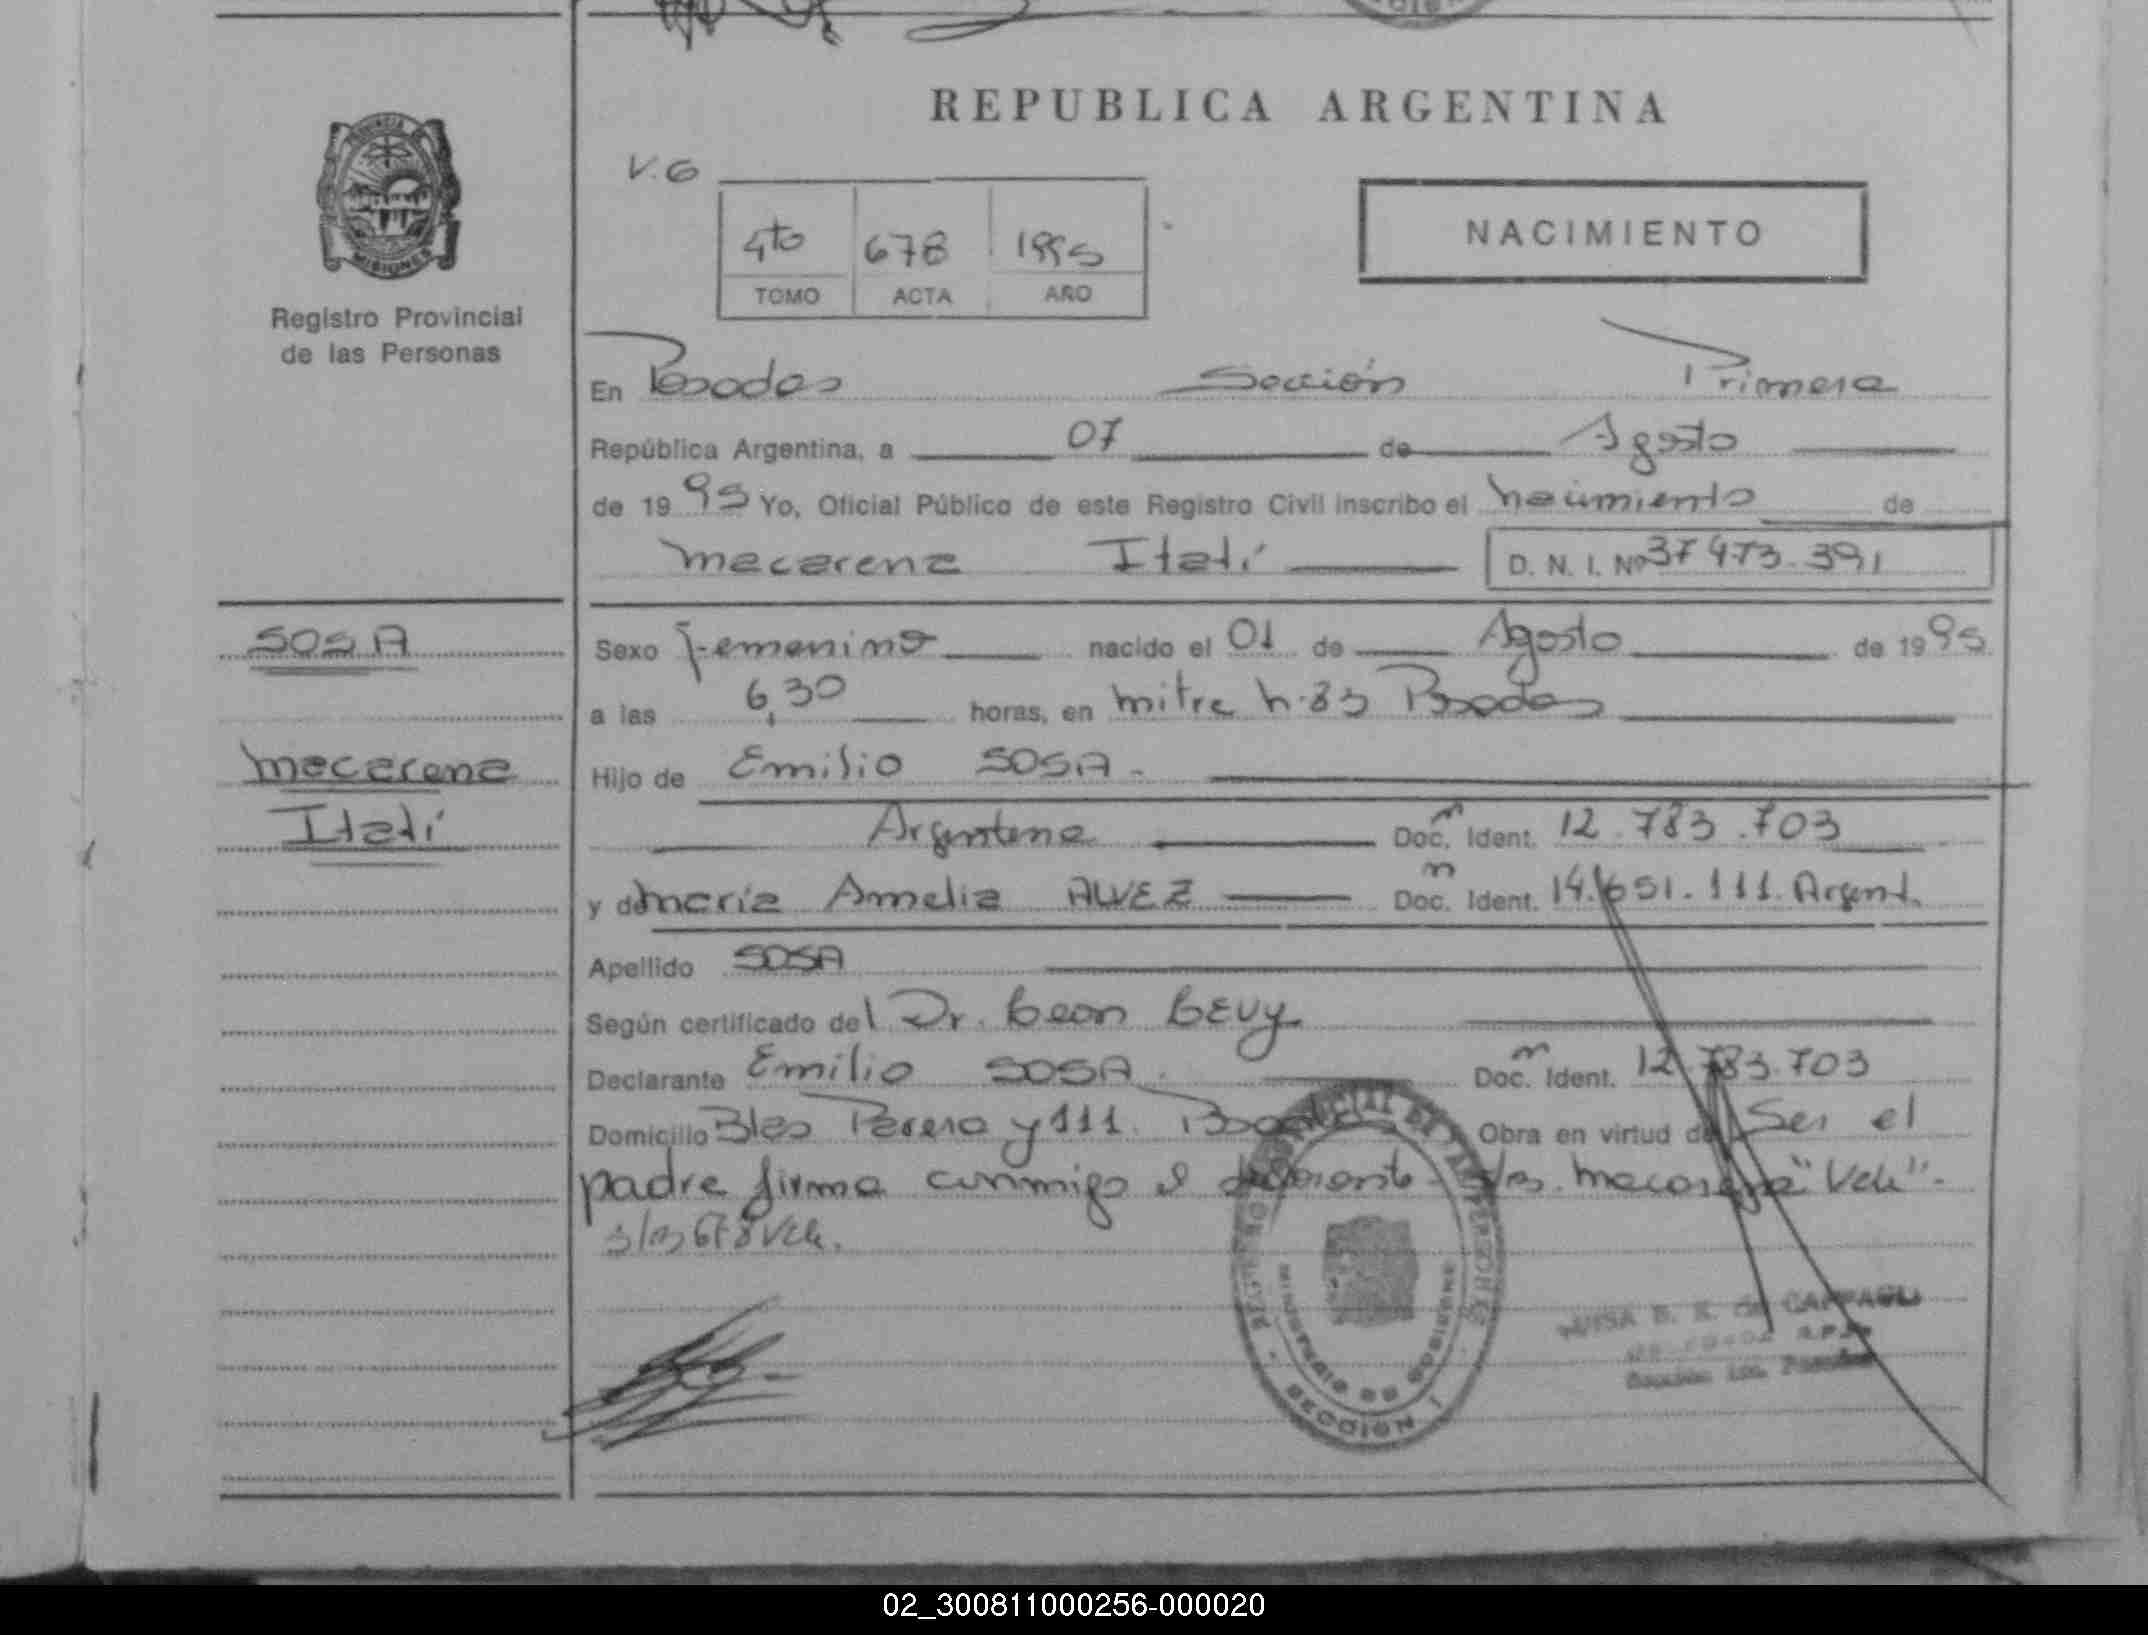 REPUBLICA ARGENTINA
V.6
4to 678 1995
TOMO ACTA AÑO
NACIMIENTO
PROVINCIA
MISIONES
Registro Provincial
de las Personas
En Posadas Sección Primera
República Argentina, a 07 de Agosto
de 19 95 Yo, Oficial Público de este Registro Civil inscribo el nacimiento de
Macarena Itatí D. N. I. Nº 37 473.391
SOSA
Macarena
Itatí
Sexo Femenino nacido el 01 de Agosto de 19 95
a las 6,30 horas, en mitre n·83 Posadas
Hijo de Emilio SOSA.
Argentina Doc. m Ident. 12.783.703
y de María Amelia ALVEZ Doc. m Ident. 14.651.111. Argent.
Apellido SOSA
Según certificado del Dr. Leon LEVY
Declarante Emilio SOSA. Doc. m Ident. 12.783.703
Domicilio Blas Parera y 111. Posadas Obra en virtud de Ser el
padre firma conmigo el declarante. Macarena "Vele".
678 Vele.
MINISTERIO DE GOBIERNO
SECCION 1
LUISA B. de
02_300811000256-000020